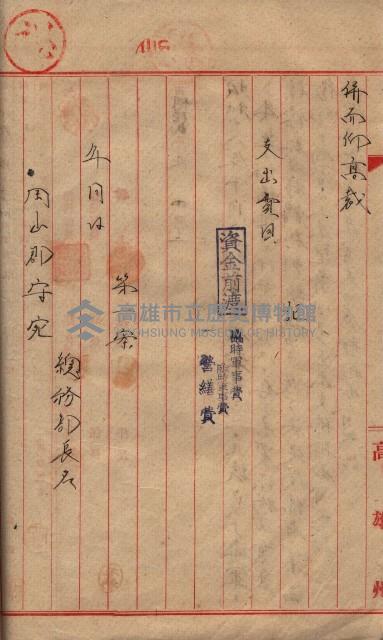 併而仰高裁
支出費目
資金前渡
臨時軍事費
臨時軍事費
營繕費
年月日
案
總務部長名
岡山郡守宛
高雄州
高雄市立歷史博物館
KAOHSIUNG MUSEUM OF HISTORY